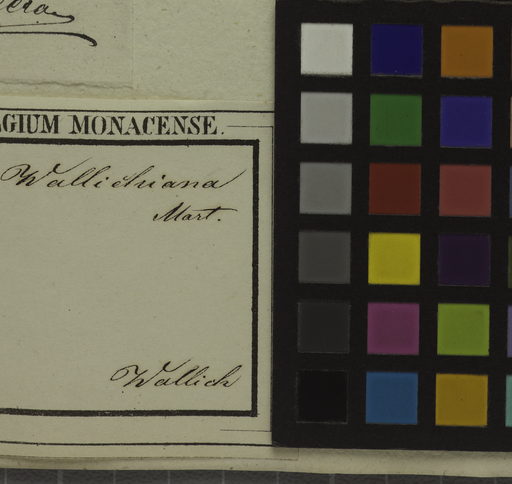 GIUM MONACENSE.
Wallichiana
Mart.
Wallich